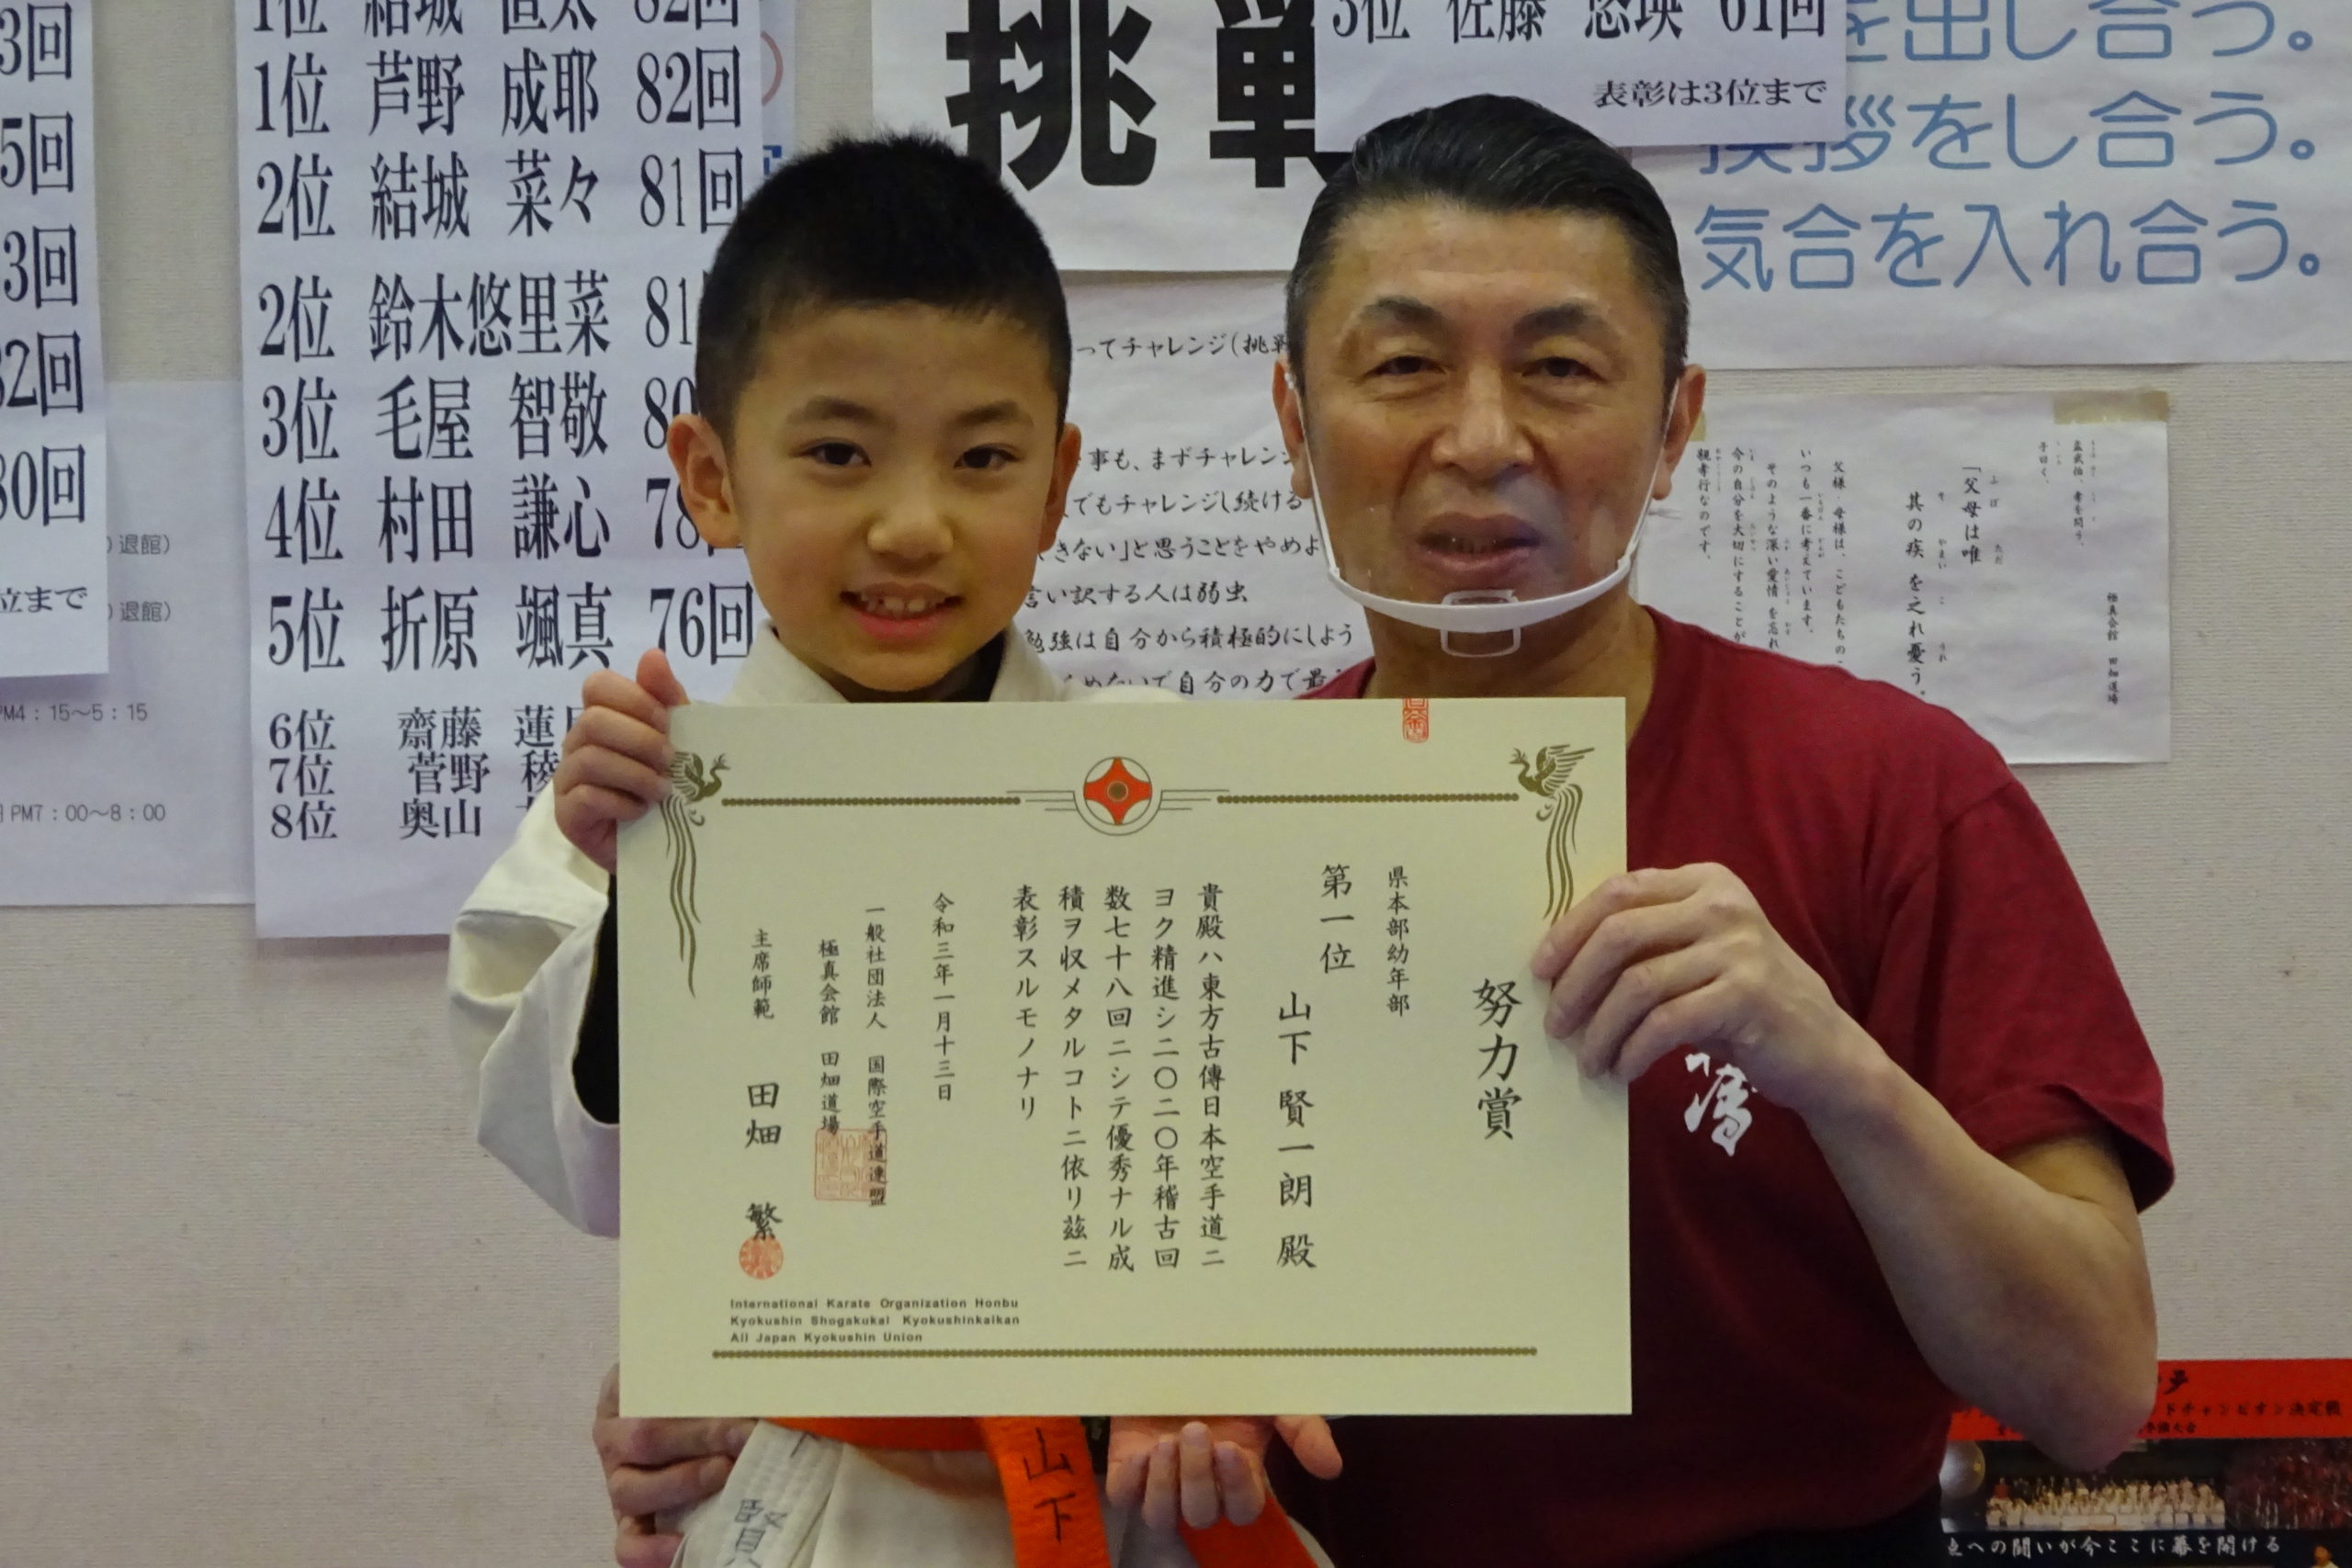 3回
5回
3回
82回
80回
位まで
退館）
退館）
PM4：15～5：15
PM7：00～8：00
1位 結城 直太 82回
1位 芦野 成耶 82回
2位 結城 菜々 81回
2位 鈴木悠里菜 81
3位 毛屋 智敬 80
4位 村田 謙心 78
5位 折原 颯真 76回
6位 齋藤 蓮
7位 菅野 稜
8位 奥山
挑戦
3位 佐藤 悠瑛 61回
表彰は3位まで
を出し合う。
挨拶をし合う。
気合を入れ合う。
ってチャレンジ（挑戦
事も、まずチャレンジ
でもチャレンジし続ける
きない」と思うことをやめよ
言い訳する人は弱虫
勉強は自分から積極的にしよう
めないで自分の力で最
孟武伯、孝を問う、
子曰く、
「父母は唯
其の疾を之れ憂う。
父様・母様は、こどもたちの
いつも一番に考えています。
そのような深い愛情を忘れ
今の自分を大切にすることが
親孝行なのです。
極真会館 田畑道場
努力賞
県本部幼年部
第一位
山下賢一朗殿
貴殿ハ東方古傳日本空手道ニ
ヨク精進シ二〇二〇年稽古回
数七十八回ニシテ優秀ナル成
積ヲ収メタルコトニ依リ茲ニ
表彰スルモノナリ
令和三年一月十三日
一般社団法人 国際空手道連盟
極真会館 田畑道場
主席師範 田畑 繁
International Karate Organization Honbu
Kyokushin Shogakukai Kyokushinkaikan
All Japan Kyokushin Union
山下
賢
ドチャンピオン決定戦
への闘いが今ここに幕を開ける